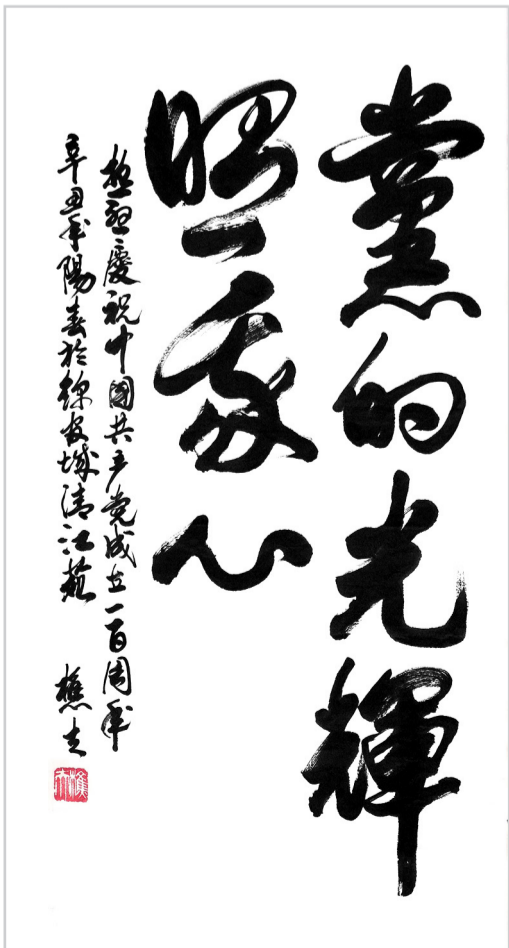 黨的光輝
照我心
热烈慶祝中國共产党成立一百周年
辛丑年陽春於錦官城清江
樵夫